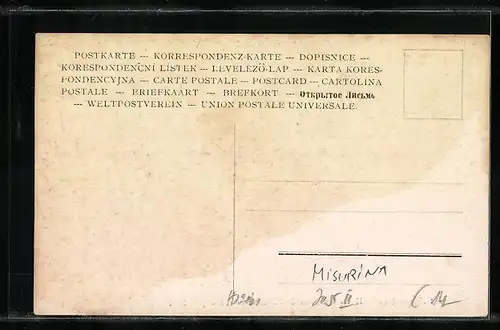 POSTKARTE — KORRESPONDENZ-KARTE — DOPISNICE —
KORESPONDENČNÍ LÍSTEK — LEVELEZŐ-LAP — KARTA KORES-
PONDENCYJNA — CARTE POSTALE — POSTCARD — CARTOLINA
POSTALE — BRIEFKAART — BREFKORT — Открытое Письмо
— WELTPOSTVEREIN — UNION POSTALE UNIVERSALE.
MISURINA